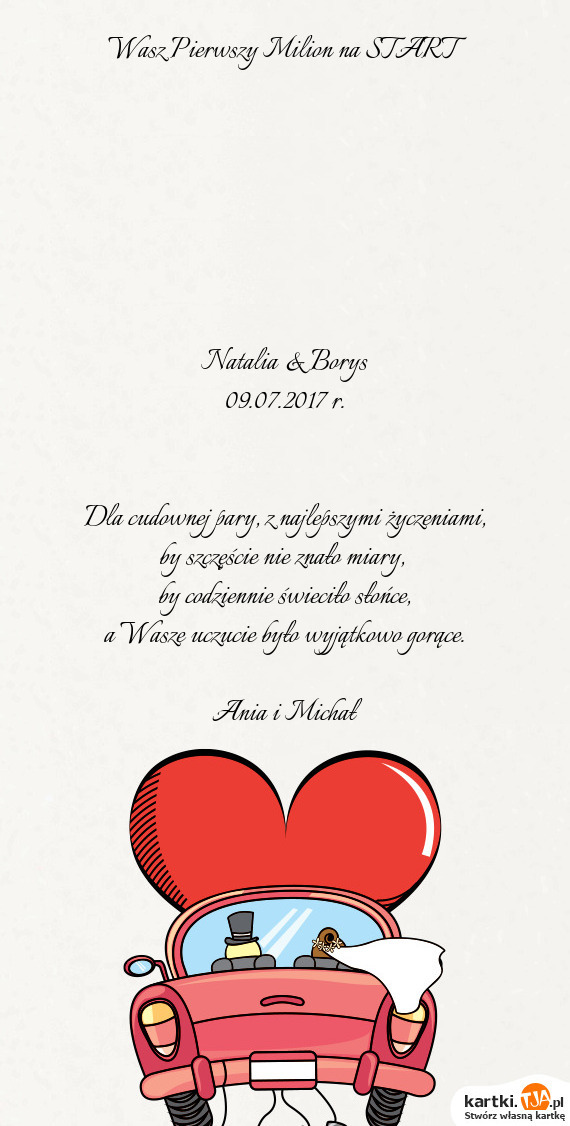 Wasz Pierwszy Milion na START
Natalia & Borys
09.07.2017 r.
Dla cudownej pary, z najlepszymi życzeniami,
by szczęście nie znało miary,
by codziennie świeciło słońce,
a Waszę uczucie było wyjątkowo gorące.
Ania i Michał
kartki.TJA.pl
Stwórz własną kartkę